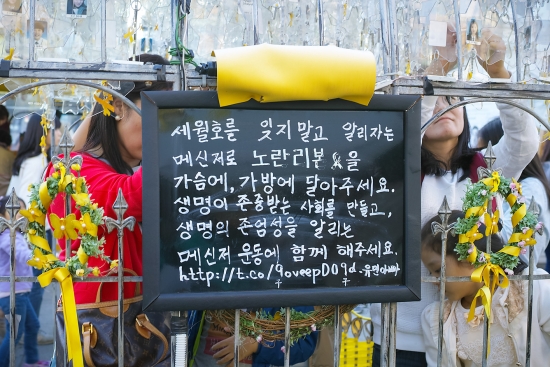 세월호를 잊지말고 알리자는
메신저로 노란리본 을
가슴에, 가방에 달아주세요.
생명이 존중받는 사회를 만들고,
생명의 존엄성을 알리는
메신저 운동에 함께 해주세요.
http://t.co/9oveepD09d -유민아빠
구 구